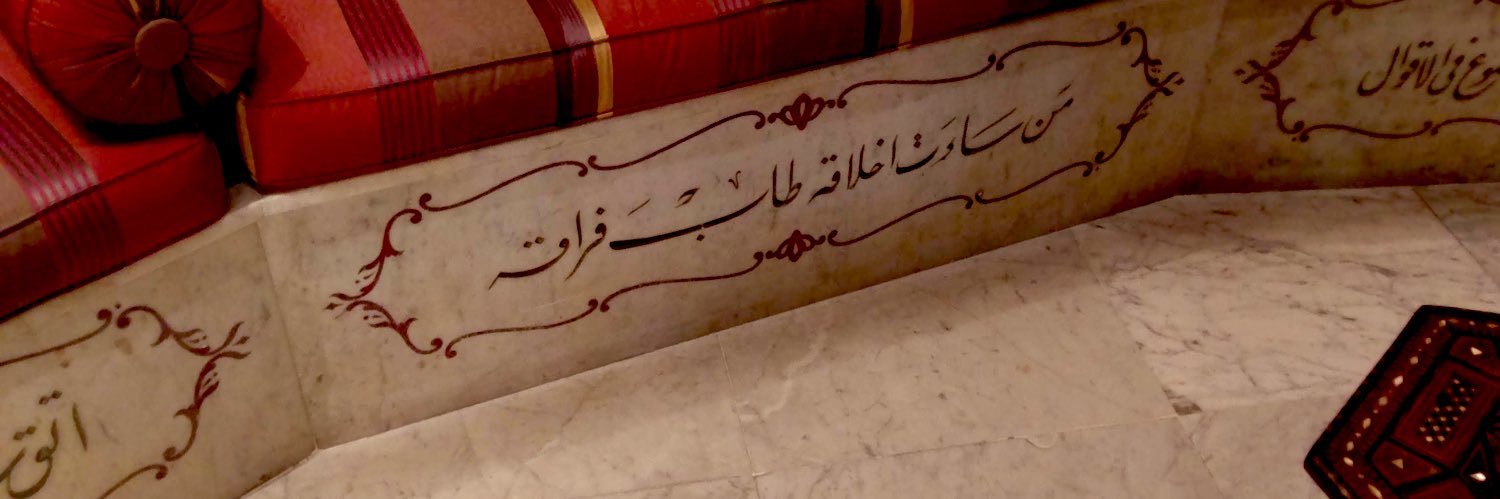 مَن سَاءَت اخلاقه طابَ فراقه
في الاقوال